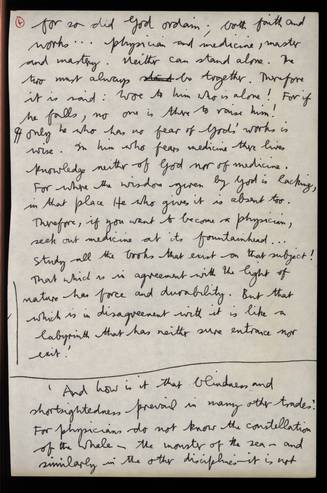 ④ for so did God ordain; both faith and
works... physician and medicine, master
and mastery. Neither can stand alone. The
two must always be together. Therefore
it is said: Woe to him who is alone! For if
he falls, no one is there to raise him!
Only he who has no fear of God's works is
wise. In him who fears medicine there lives
knowledge neither of God nor of medicine.
For where the wisdom given by God is lacking,
in that place He who gives it is absent too.
Therefore, if you want to become a physician,
seek out medicine at its fountainhead...
Study all the books that exist on that subject!
That which is in agreement with the light of
nature has force and durability. But that
which is in disagreement with it is like a
labyrinth that has neither sure entrance nor
exit.
' And how is it that blindness and
shortsightedness prevail in many other trades?
For physicians do not know the constellation
of the whale – the monster of the sea – and
similarly in the other disciplines it is not